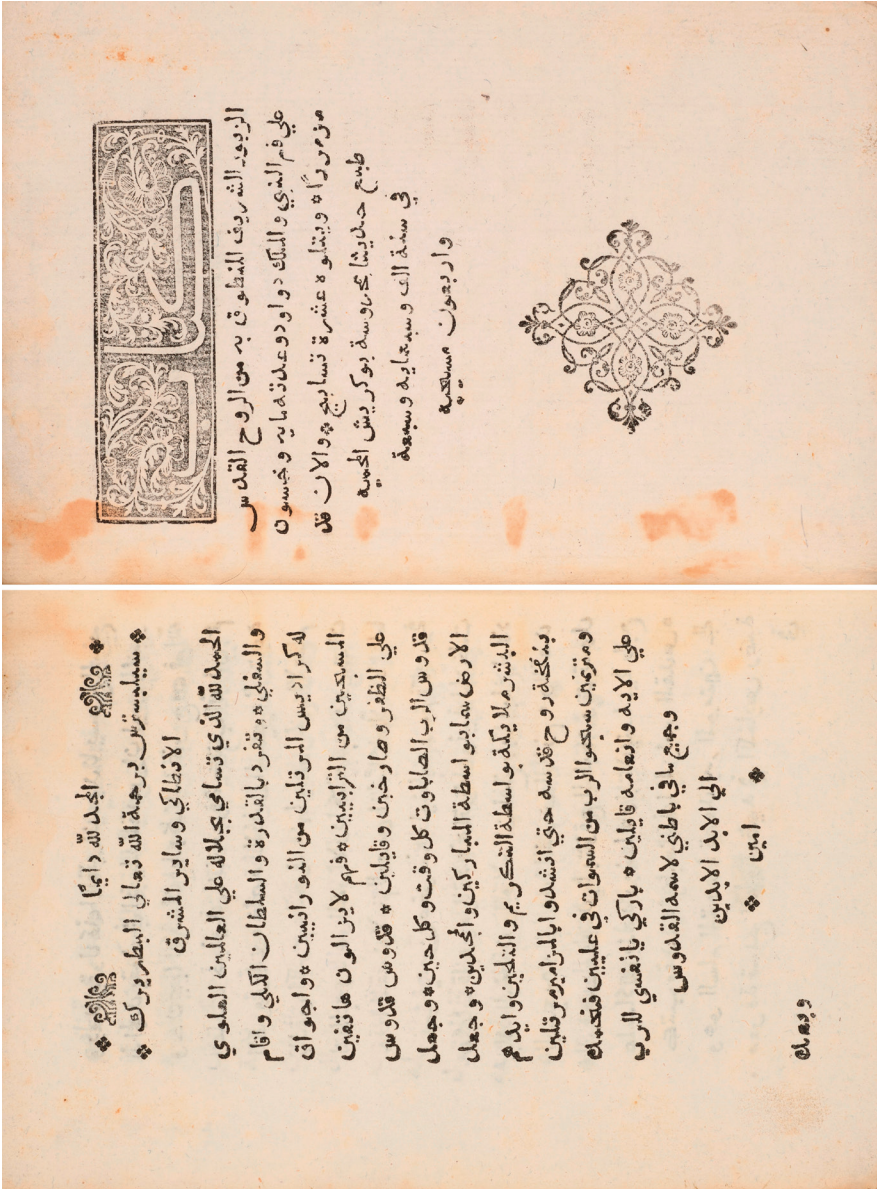 كتاب
الزبور الشريف المنطوق به من الروح القدس
علي فم النبي والملك دواود وعدته مايه وخمسون
مزمورًا * ويتلوه عشرة تسابيح * والان قد
طبع حديثا بمحروسة بوكريش المحمية
في سنة الف وسبعمايه وسبعة
واربعون مسيحية
المجد لله دايمًا
سيلبسترس برحمة الله تعالي البطريرك
الانطاكي وساير المشرق
الحمد لله الذي تسامي بجلاله علي العالمين العلوي
والسفلي * وتفرد بالقدرة والسلطان الكلي واقام
له كراديس المرتلين من النورانيين * واجواق
المسبحين من الترابيين * فهم لايزالون هاتفين
علي الظفر وصارخين وقايلين * قدوس قدوس
قدوس الرب الصاباوت كل وقت وكل حين * وجعل
الارض سما بواسطة المباركين والمجدين * وجعل
البشر ملايكة بواسطة التكريم والتلحين وايدهم
بنفخة روح قدسه حتي انشدوا بالمزامير مرتلين
ومترنمين سبحوا الرب من السموات في عليين فنحمدك
علي الايه وانعامه قايلين * باركي يا نفسي للرب
وجميع ما في باطني لاسمه القدوس
الي الابد الابدين
امين
وبعد